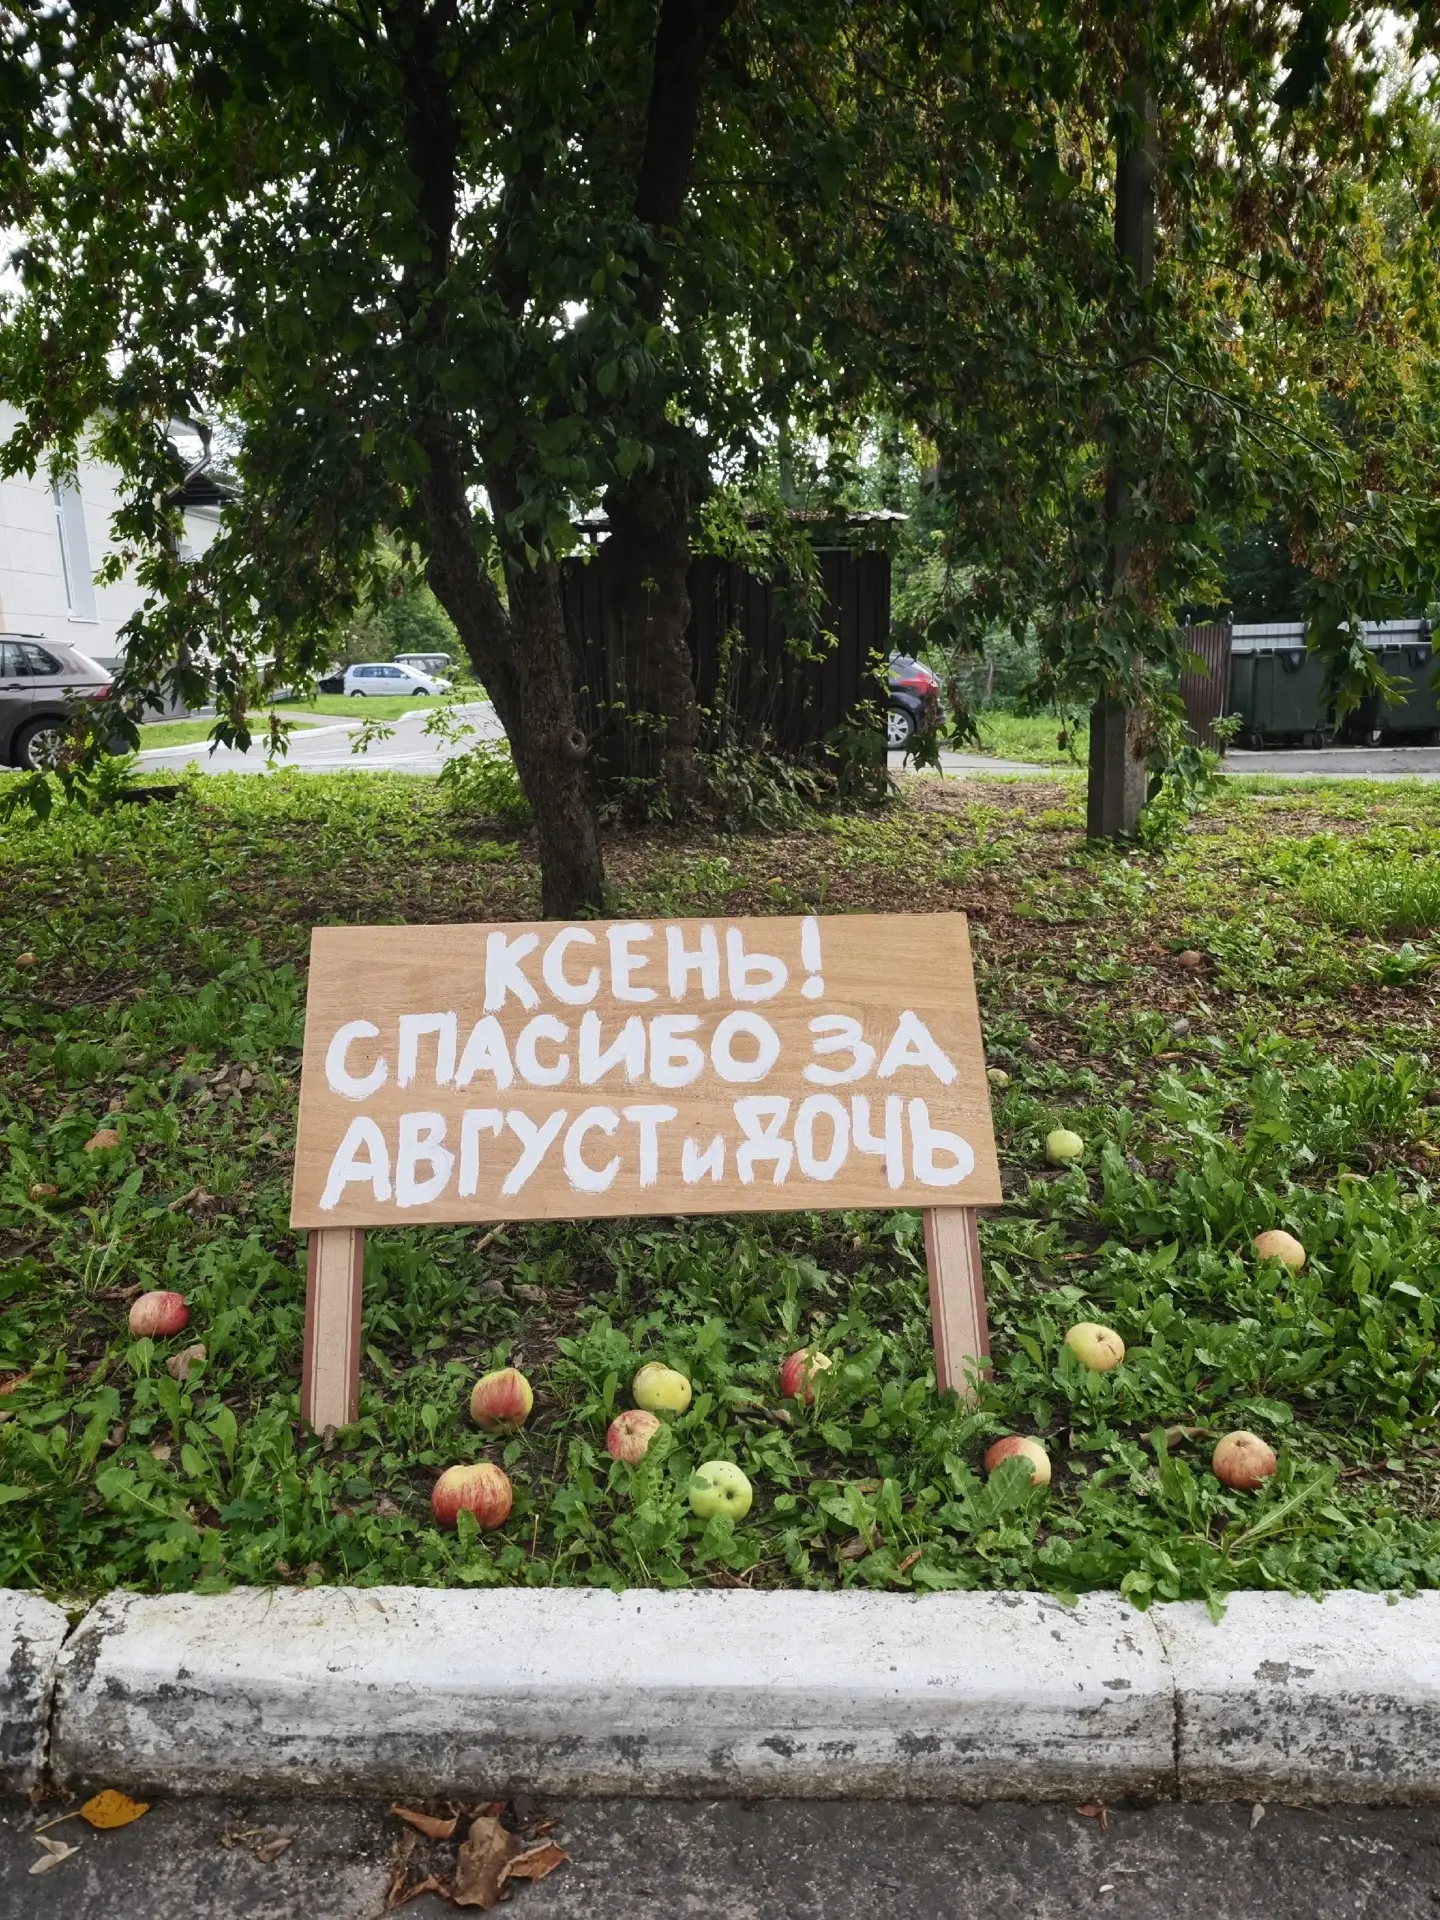 КСЕНЬ!
СПАСИБО ЗА
АВГУСТ и ДОЧЬ